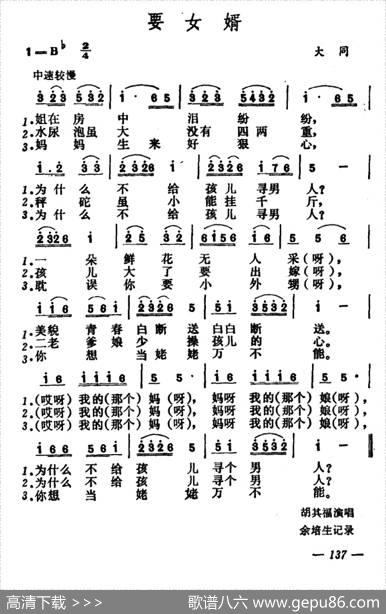 要女婿
1=B♭ 2/4
大同
中速较慢
1.姐在房中泪纷纷,
2.水尿泡虽大没有四两重,
3.妈妈生来好狠心,
1.为什么不给孩儿寻男人?
2.秤砣虽小能挂千斤,
3.为什么不给孩儿寻男人?
1.一朵鲜花无人采(呀),
2.孩儿大了要出嫁(呀),
3.耽误你要小外甥(呀),
1.美貌青春白断送白白断送。
2.二老爹娘少操孩儿的心。
3.你想当姥姥万不能。
1.(哎呀)我的(那个)妈(呀),妈呀我的(那个)娘(呀),
2.(哎呀)我的(那个)妈(呀),妈呀我的(那个)娘(呀),
3.(哎呀)我的(那个)妈(呀),妈呀我的(那个)娘(呀),
1.为什么不给孩儿寻个男人?
2.为什么不给孩儿寻个男人?
3.你想当姥姥万不能。
胡其福演唱
余培生记录
— 137 —
高清下载 >>> 歌谱八六 www.gepu86.com